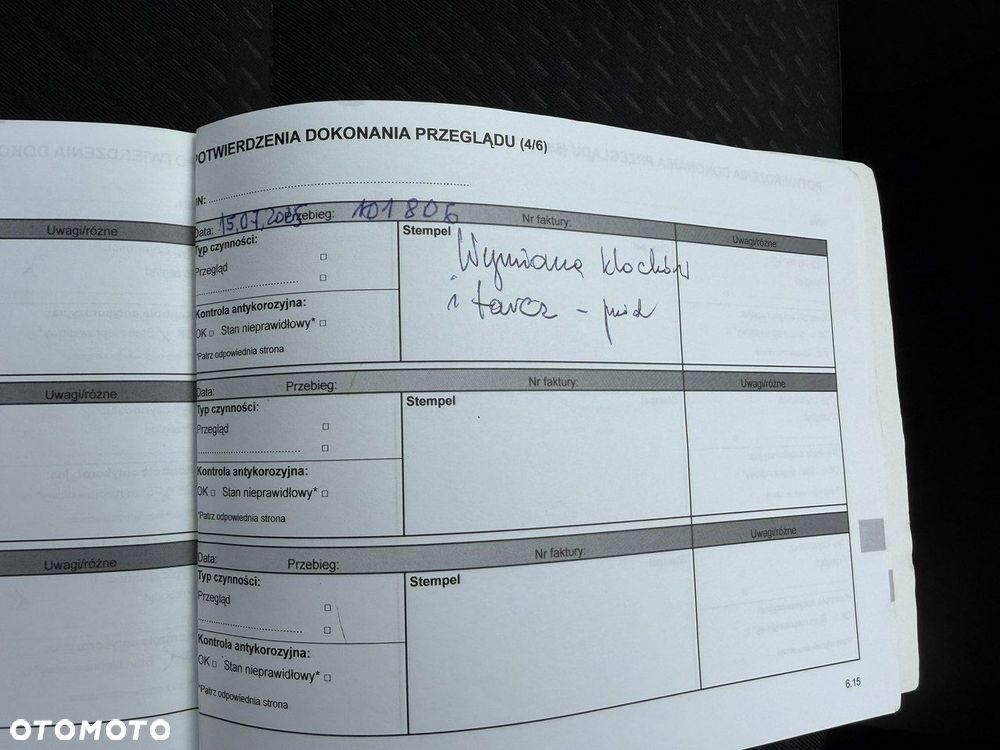 POTWIERDZENIA DOKONANIA PRZEGLĄDU (4/6)
IN:
Data: 15.07.2025 Przebieg: 101 806 Nr faktury: Uwagi/różne
Typ czynności:
Przegląd
Kontrola antykorozyjna:
OK Stan nieprawidłowy*
*Patrz odpowiednia strona
Stempel
Wymiana klocków
i tarcz - przód
Data: Przebieg: Nr faktury: Uwagi/różne
Typ czynności:
Przegląd
Kontrola antykorozyjna:
OK Stan nieprawidłowy*
*Patrz odpowiednia strona
Stempel
Data: Przebieg: Nr faktury: Uwagi/różne
Typ czynności:
Przegląd
Kontrola antykorozyjna:
OK Stan nieprawidłowy*
*Patrz odpowiednia strona
Stempel
6.15
Uwagi/różne
Uwagi/różne
Uwagi/różne
OTOMOTO